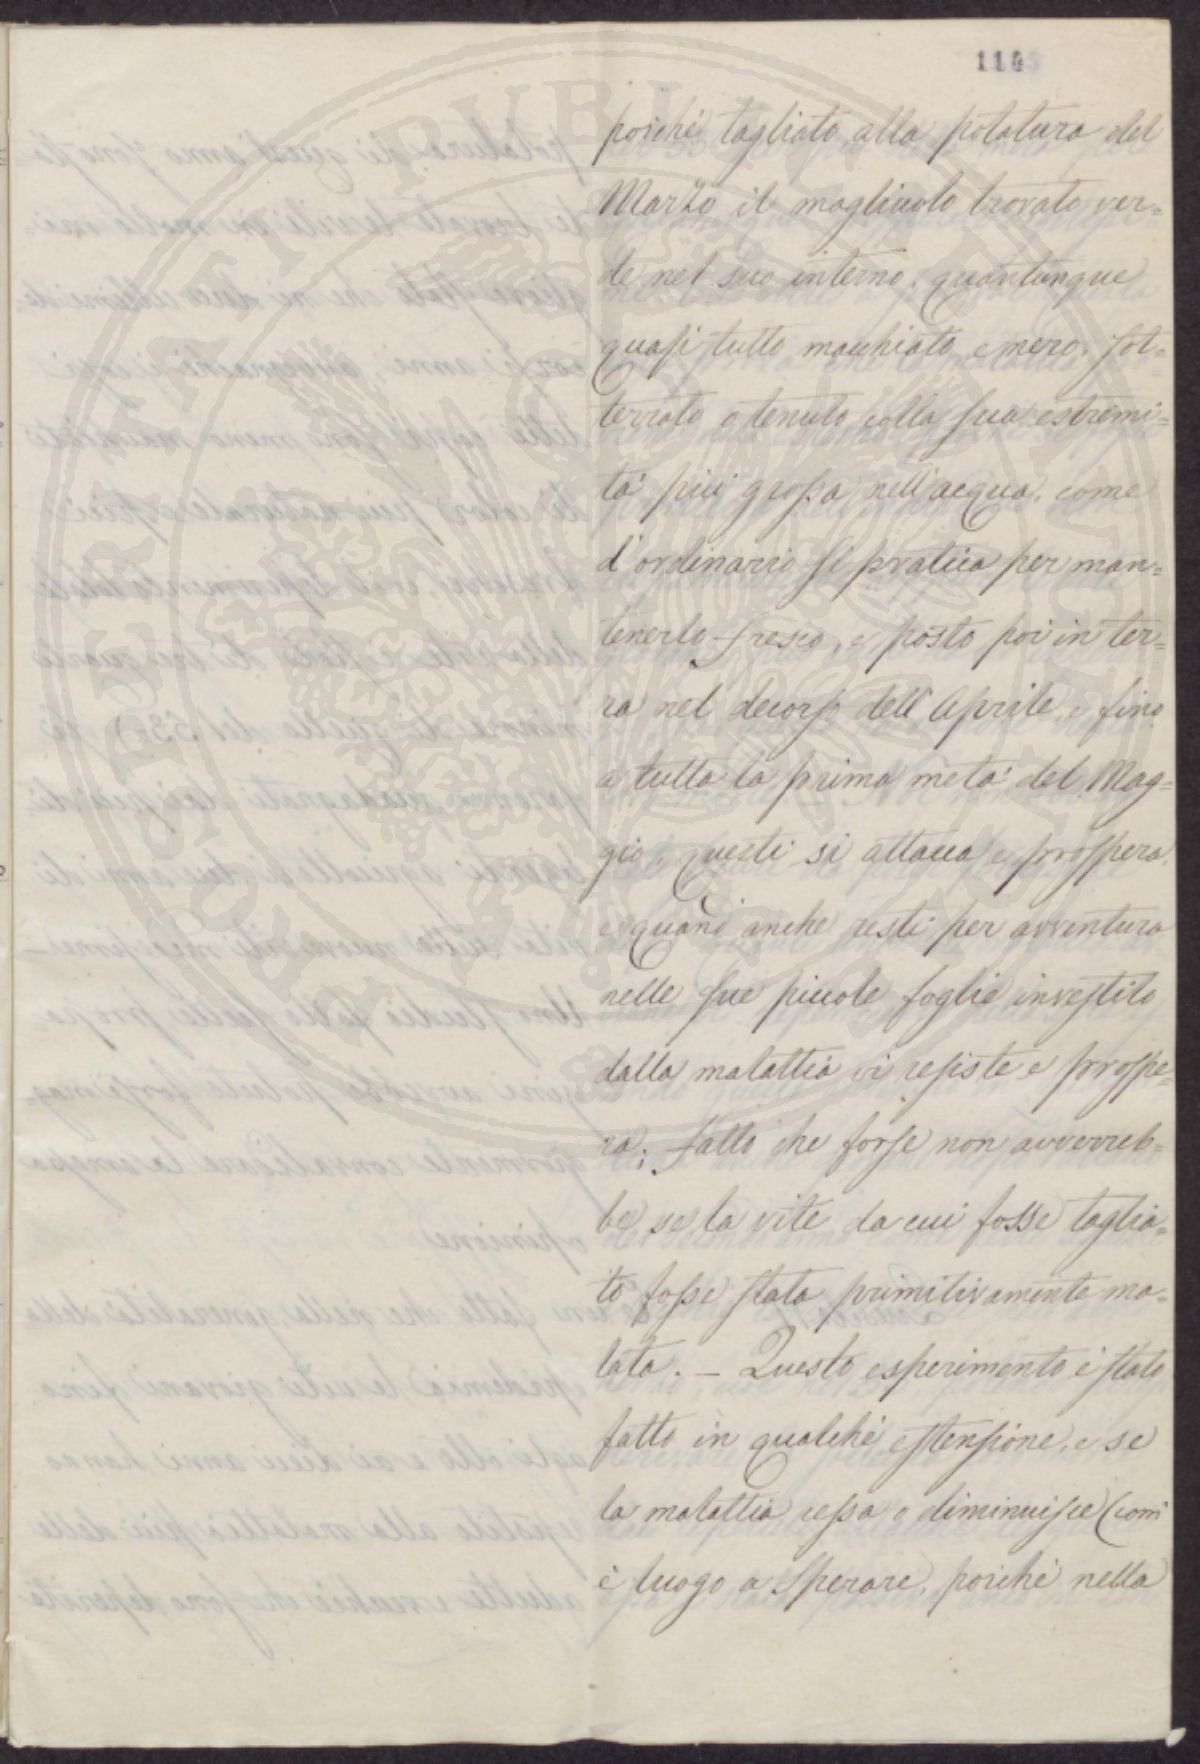 1145
poichè tagliato alla potatura del
Marzo il magliuolo trovato ver=
de nel suo interno, quantunque
quasi tutto macchiato e nero, sot=
terrato o tenuto colla sua estremi=
tà più grossa nell'acqua, come
d'ordinario si pratica per man=
tenerlo fresco, e posto poi in ter=
ra nel decorso dell'Aprile, e fino
a tutta la prima metà del Mag=
gio, questi si attacca e prospera,
e quand'anche resti per avventura
nelle sue piccole foglie investito
dalla malattia vi resiste e prospe=
ra; fatto che forse non avverreb=
be se la vite da cui fosse taglia=
to fosse stata primitivamente ma=
lata. – Questo esperimento è stato
fatto in qualche estensione, e se
la malattia cessa o diminuisce (com'
è luogo a sperare, poichè nella